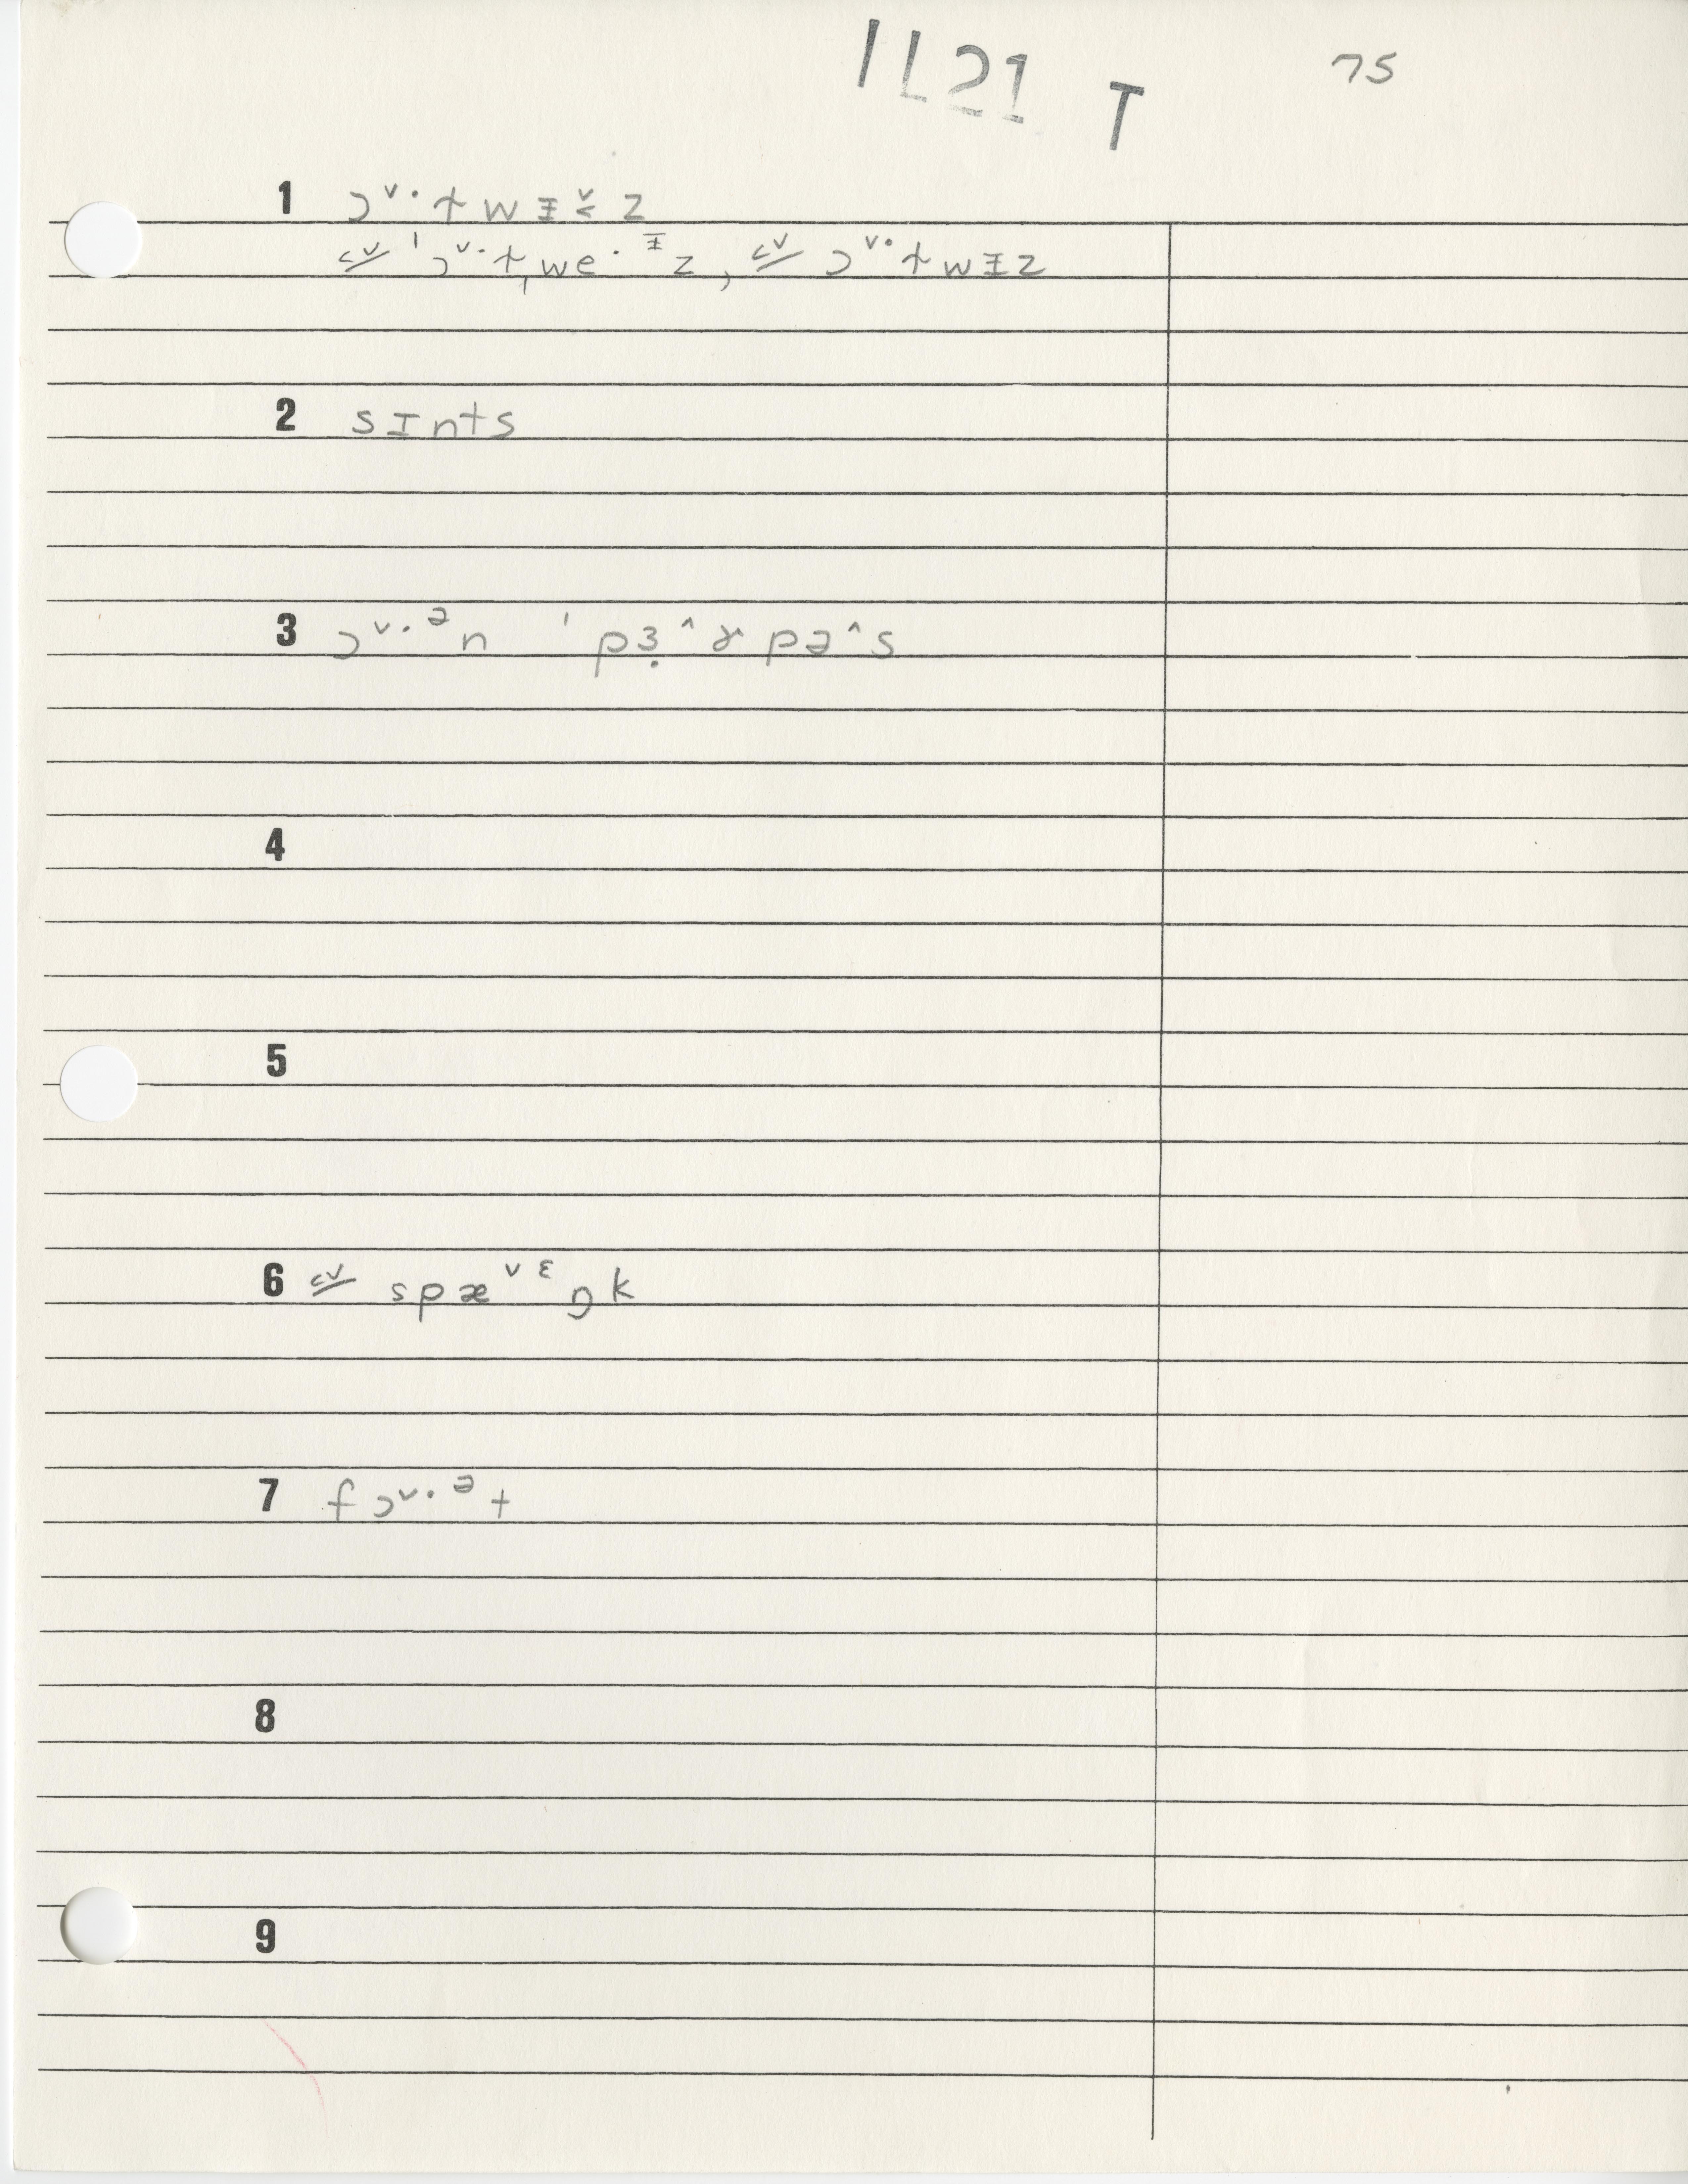 1L21 T 75
1 ɔ˅·ɫwɪ̵˅z
cv ˈɔ˅·ɫˌwe·ᵻz, cv ɔ˅·ɫwᵻz
2 sɪnts
3 ɔ˅·ᵊn ˈpɜ̣^ɚpə^s
4
5
6 cv spæ˅ᵋŋk
7 fɔ˅·ᵊt
8
9